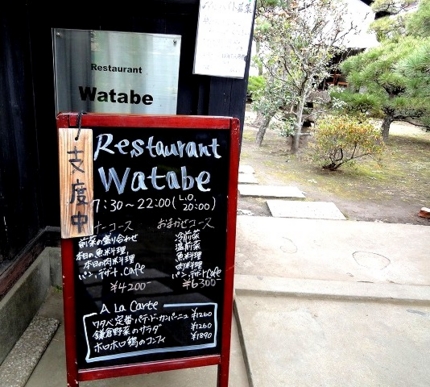 Restaurant
Watabe
支度中
Restaurant
Watabe
7:30～22:00(L.O. 20:00)
ナーコース
前菜の盛り合わせ
本日の魚料理
本日の肉料理
パン、デザート、Cafe
¥4200-
おまかせコース
冷前菜
温前菜
魚料理
肉料理
パン、デザート、Cafe
¥6300-
A La Carte
ワタベ定番・パテ・ド・カンパーニュ ¥1260
鎌倉野菜のサラダ ¥1260
ホロホロ鶏のコンフィ ¥1890